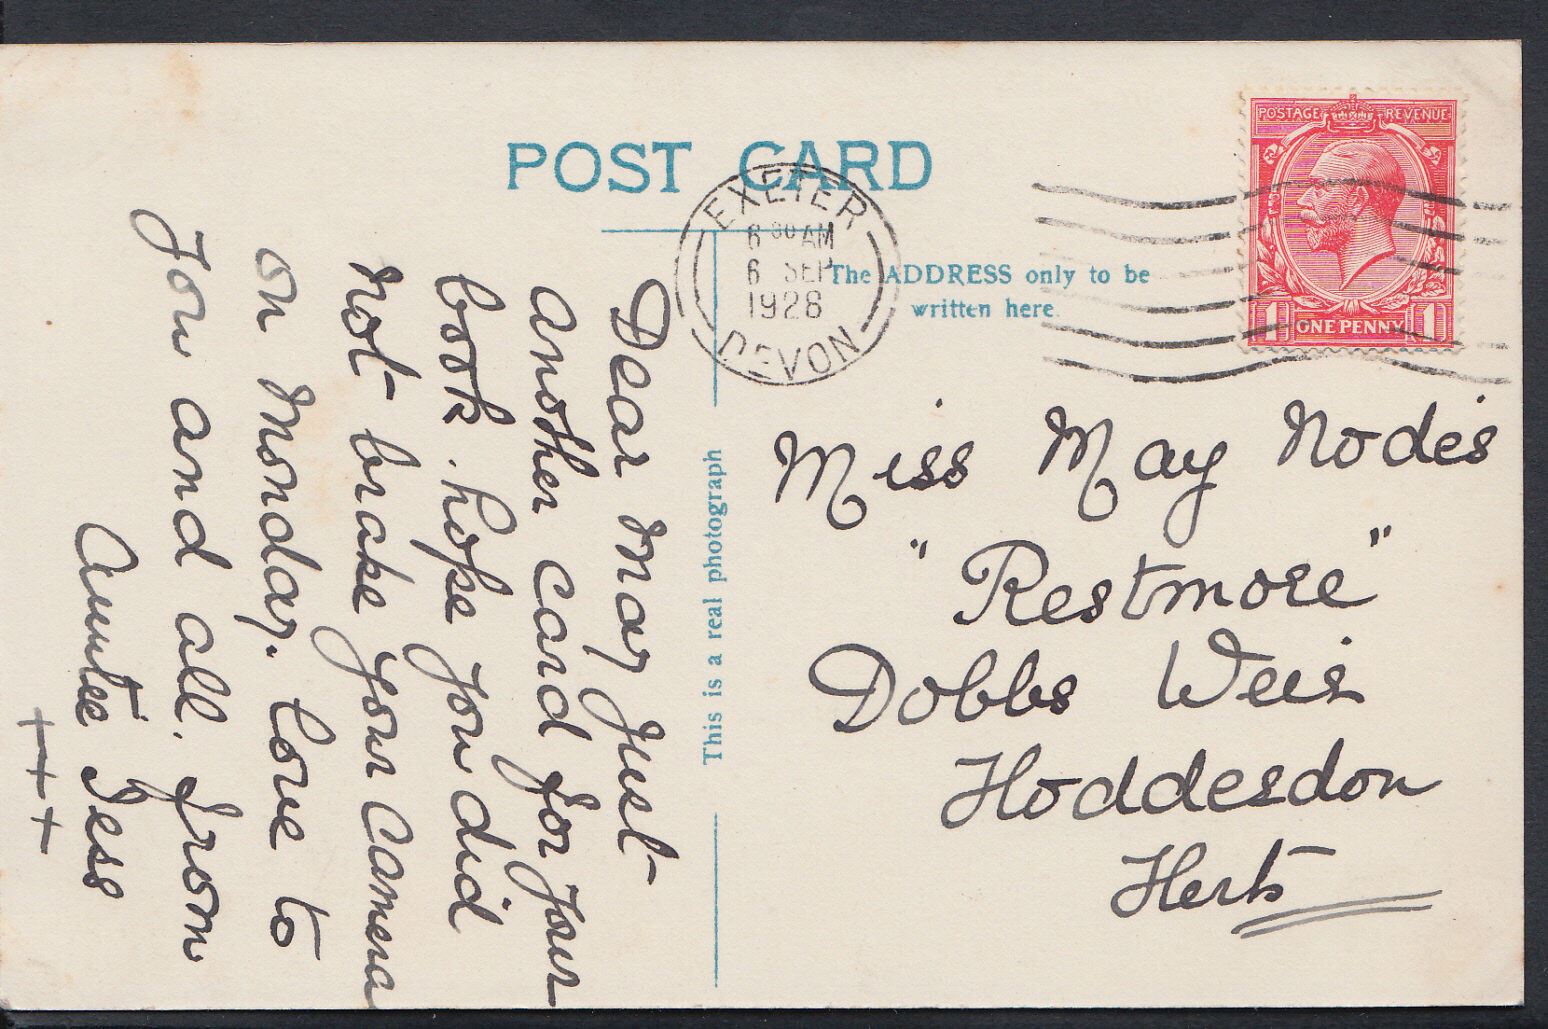 POST CARD
EXETER
6 30 AM
6 SEP
1928
DEVON
POSTAGE REVENUE
1 ONE PENNY 1
The ADDRESS only to be
written here.
This is a real photograph
Dear May Just
another card for your
book. hope you did
not brake your camera
on Monday. love to
you and all. from
Auntee Jess
+ + +
Miss May Nodes
"Restmore"
Dobbs Weir
Hoddesdon
Herts